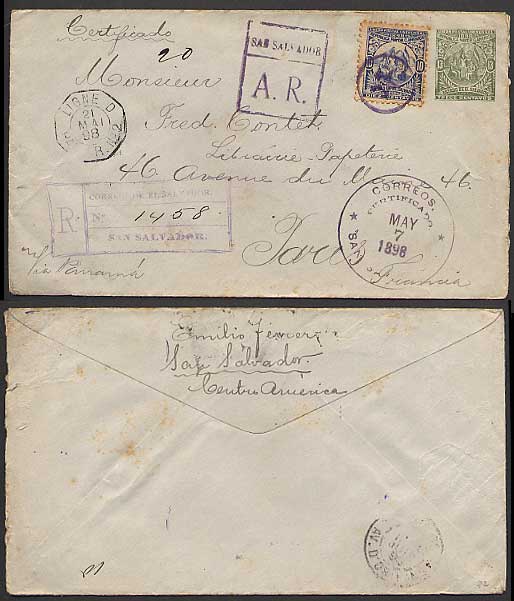 Certificado
20
SAN SALVADOR
A. R.
Monsieur
LIGNE D
21
MAI
98
Fred. Contet.
Librairie-Papeterie
46 Avenue du 46
R
CORREOS DE EL SALVADOR.
No. 1458
SAN SALVADOR.
CORREOS.
CERTIFICADO
MAY
7
1898
SAN
Via Panamá
Francia
Emilio
San Salvador
Centro América
AV. D'